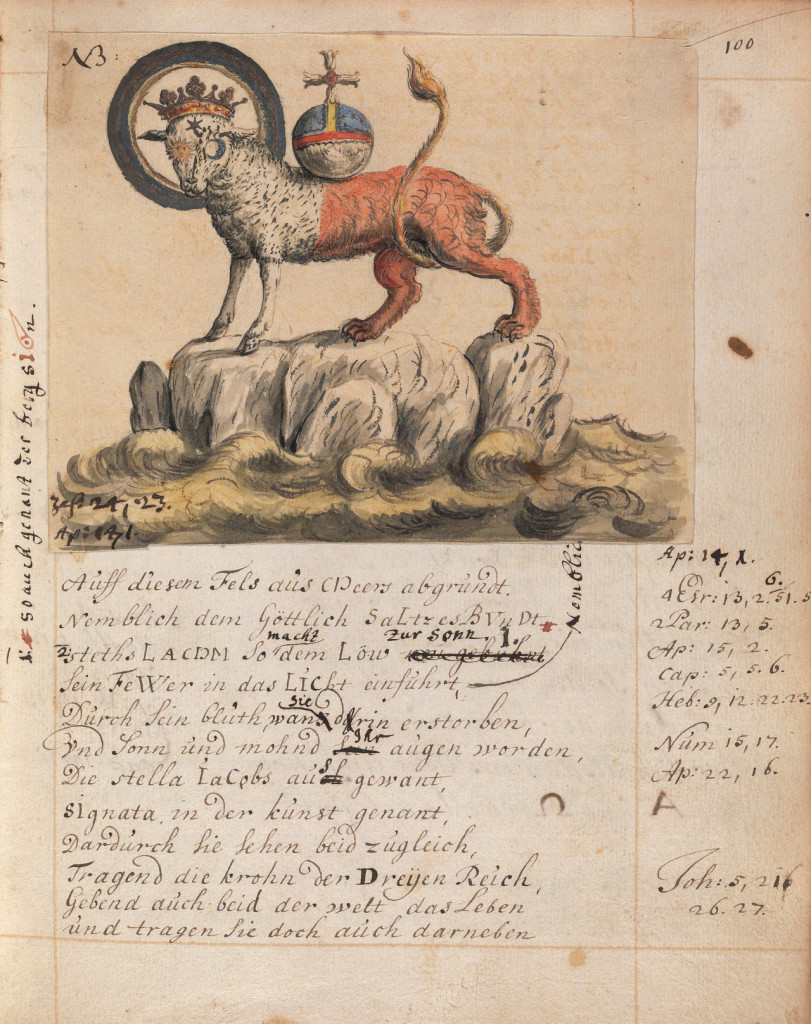 NB:
100
✱ so auch genant der berg SION.
Jes. 24, 23.
Ap: 14, 1.
Auff diesem Fels aus Meers abgrundt.
Nemblich dem Göttlich SaLtzesBVnDt
stehts LACDM so dem Löw
macht
zur Sonn.
sein FeWer in das LICht einführt,
Nemblich
Durch sein bluth wan sie drin erstorben,
Vnd Sonn und mohnd Ihr augen worden,
Die stella IaCobs auch gewant,
SIgnata in der kunst genant,
Dardurch sie sehen beid zugleich,
Tragend die krohn der Dreyen Reich,
Gebend auch beid der welt das Leben
und tragen sie doch auch darneben
Ap: 14, 1.
4 Esr: 13, 2. 6. 51. 5
2 Par: 13, 5.
Ap: 15, 2.
Cap: 5, 5. 6.
Heb: 9, 12. 22. 23.
Num 15, 17.
Ap: 22, 16.
Joh: 5, 21
26. 27.